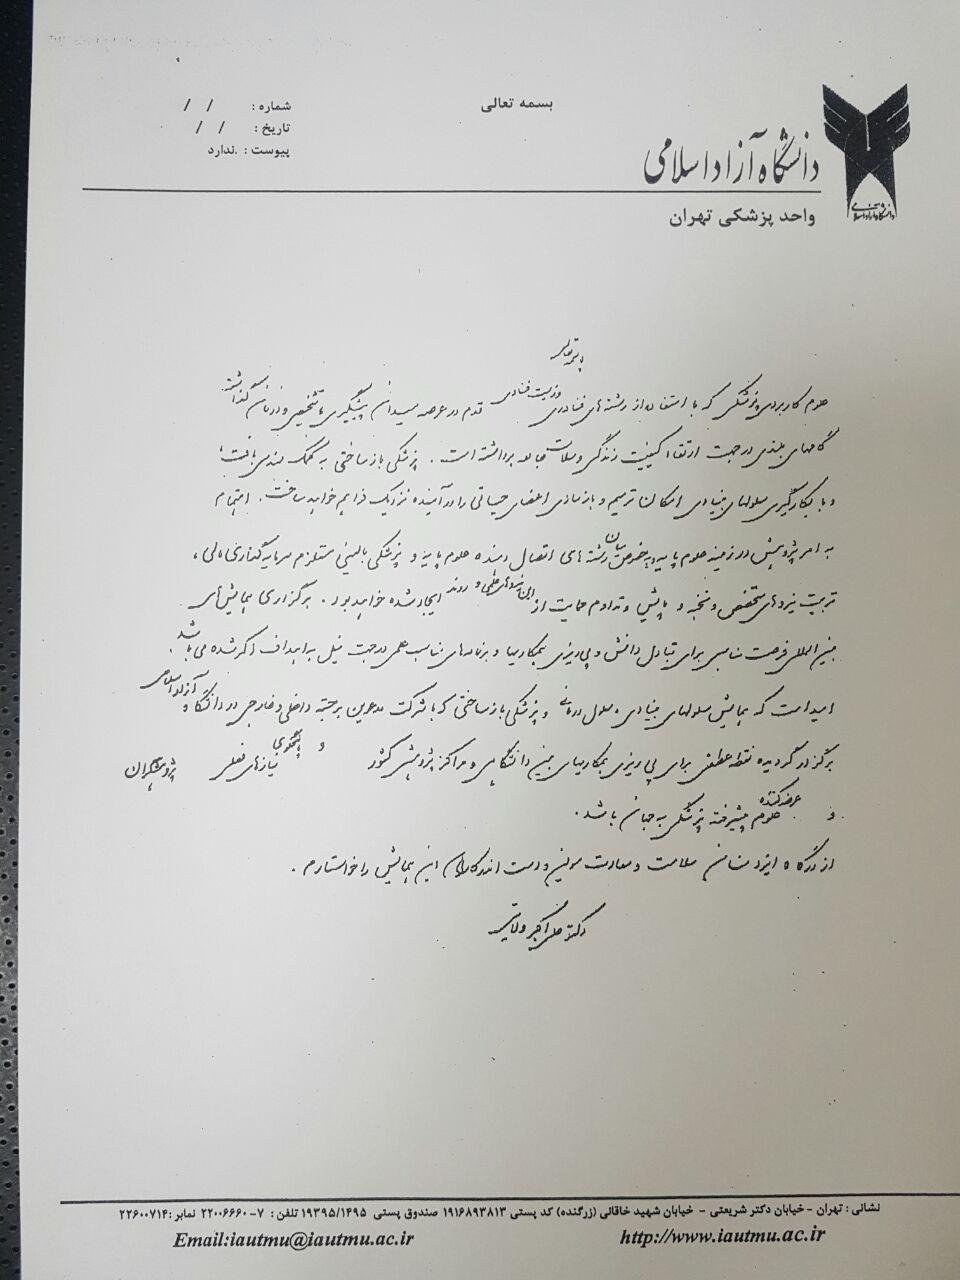 بسمه تعالی
شماره : / /
تاریخ : / /
پیوست : .ندارد
دانشگاه آزاد اسلامی
واحد پزشکی تهران
باسمه تعالی
علوم کاربردی پزشکی که با استفاده از رشته‌های فناوری و زیست فناوری قدم در عرصه میدان پیشگیری تا تشخیص و درمان گذاشته
گامهای بلندی در جهت ارتقاء کیفیت زندگی و سلامت جامعه برداشته است . پزشکی بازساختی به کمک مهندسی بافت ،
و با بکارگیری سلولهای بنیادی امکان ترمیم و بازسازی اعضای حیاتی را در آینده نزدیک فراهم خواهد ساخت . اهتمام
به امر پژوهش در زمینه علوم پایه و بخصوص میان رشته های اتصال دهنده علوم پایه و پزشکی بالینی مستلزم سرمایه گذاری مالی ،
تربیت نیروهای متخصص و نخبه و پایش و تداوم حمایت از این نیروهای علمی و روند ایجاد شده خواهد بود . برگزاری همایش‌های
بین المللی فرصت مناسبی برای تبادل دانش و پی‌ریزی همکاریها و برنامه‌های مناسب علمی در جهت نیل به اهداف ذکر شده می باشد .
امید است که همایش سلولهای بنیادی ، سلول درمانی و پزشکی بازساختی که با شرکت مدعوین برجسته داخلی و خارجی در دانشگاه آزاد اسلامی
برگزار گردیده نقطه عطفی برای پی ریزی همکاریهای بین دانشگاهی و مراکز پژوهشی کشور و پاسخگوی نیازهای فعلی پژوهشگران
و عرضه کننده علوم پیشرفته پزشکی به جهان باشد .
از درگاه ایزد منان سلامت و سعادت مسولین و دست اندرکاران این همایش را خواستارم .
دکتر علی اکبر ولایتی
نشانی : تهران - خیابان دکتر شریعتی - خیابان شهید خاقانی (زرگنده) کد پستی ۱۹۱۶۸۹۳۸۱۳ صندوق پستی ۱۹۳۹۵/۱۴۹۵ تلفن : ۷-۲۲۰۰۶۶۶۰ نمابر :۲۲۶۰۰۷۱۴
Email:iautmu@iautmu.ac.ir http://www.iautmu.ac.ir